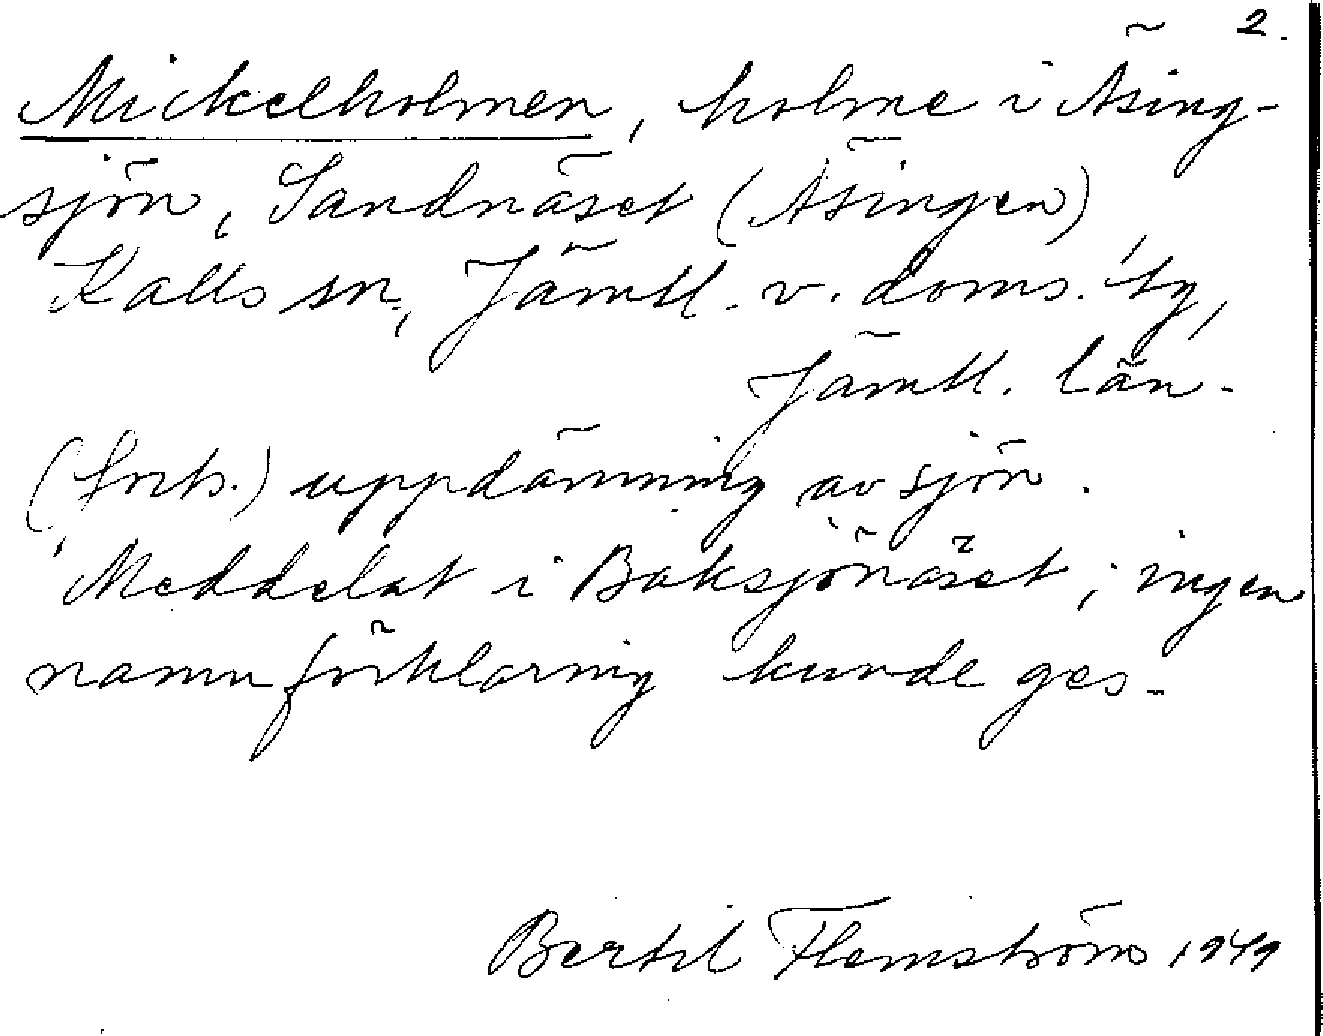 2.
Mickelholmen, holme i Äsing-
sjön, Sandnäset (Äsingen),
Kalls sn, Jämtl. v. doms. tg,
Jämtl. län.
(forts.) uppdämning av sjön.
Meddelat i Baksjönäset; ingen
namnförklaring kunde ges.
Bertil Flemström 1949